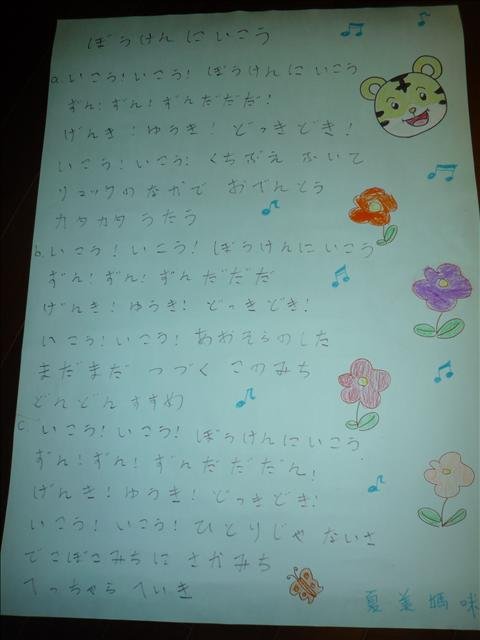 ぼうけんにいこう
a. いこう!いこう! ぼうけんにいこう
ずん!ずん!ずんだだだ!
げんき!ゆうき!どっきどき!
いこう!いこう! くちぶえ ふいて
リュックのなかで おべんとう
カタカタ うたう
b. いこう!いこう! ぼうけんにいこう
ずん!ずん!ずんだだだ
げんき!ゆうき!どっきどき!
いこう!いこう! あおそらのした
まだまだ つづく このみち
どんどん すすめ
c. いこう!いこう! ぼうけんにいこう
ずん!ずん!ずんだだだん!
げんき!ゆうき!どっきどき!
いこう!いこう! ひとりじゃ ないさ
でこぼこみちに さかみち
へっちゃら へいき
夏美媽咪